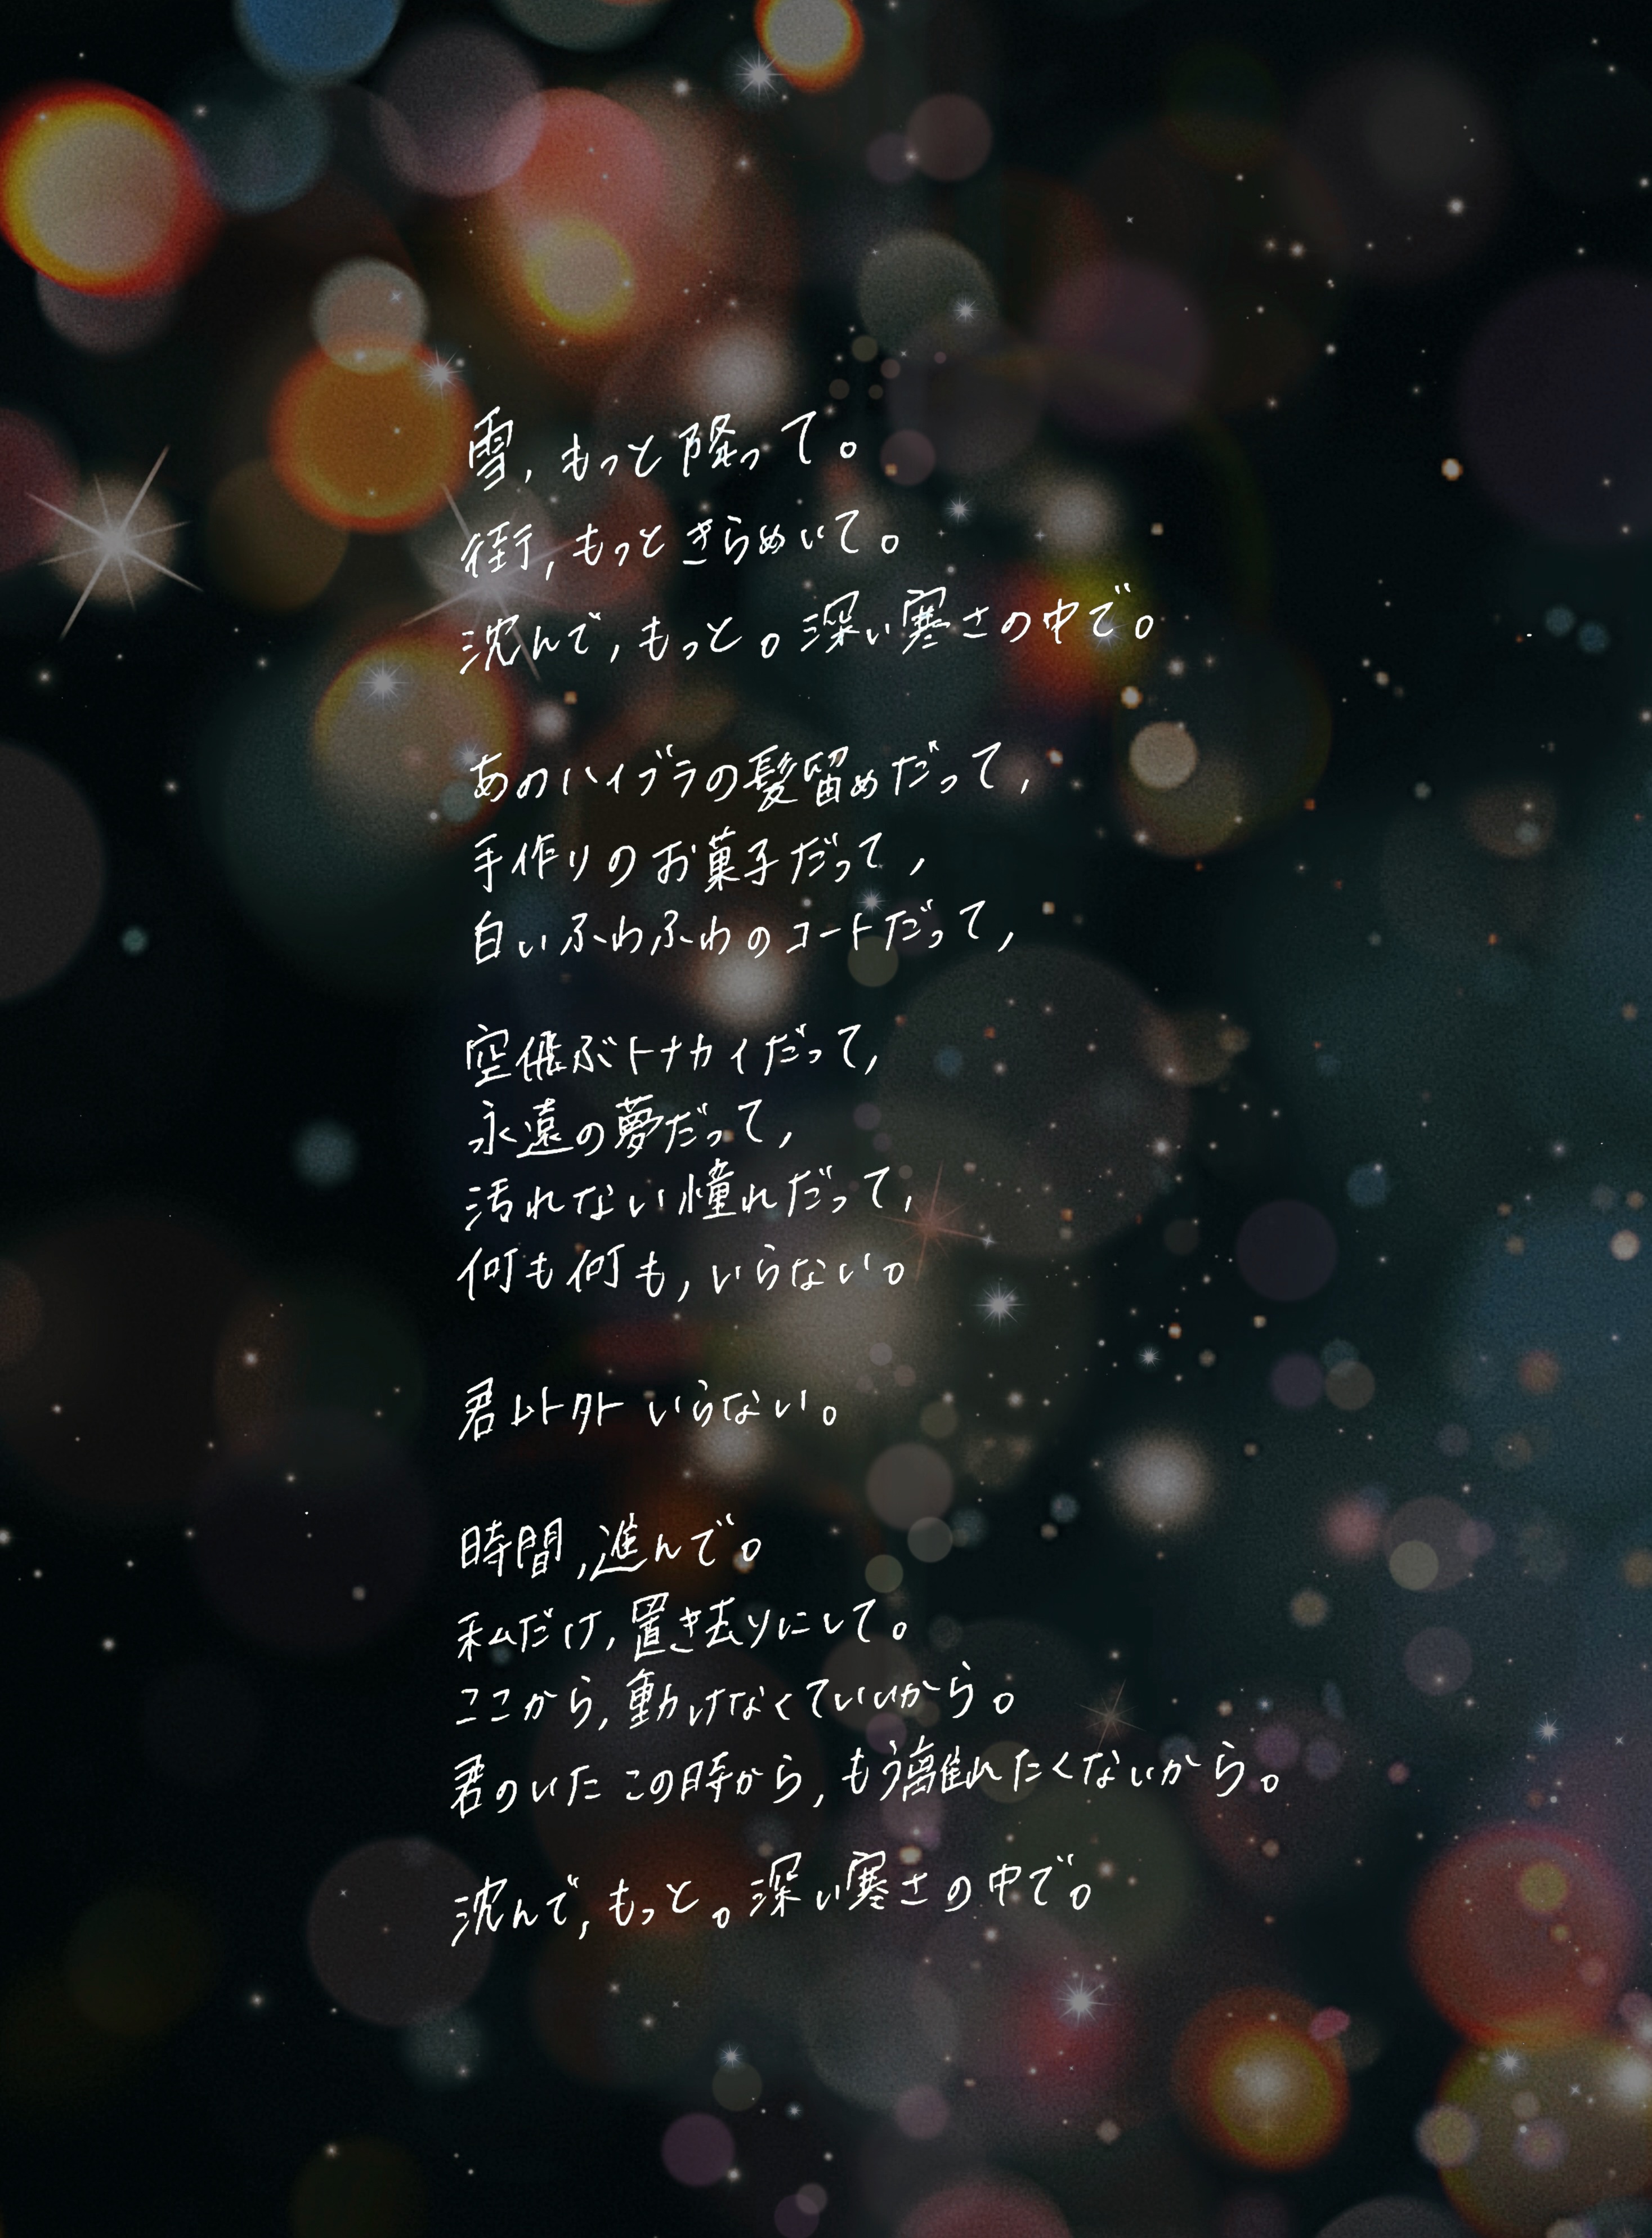 雪,もっと降って。
街,もっときらめいて。
沈んで,もっと。深い寒さの中で。
あのハイブラの髪留めだって,
手作りのお菓子だって,
白いふわふわのコートだって,
空飛ぶトナカイだって,
永遠の夢だって,
汚れない憧れだって,
何も何も,いらない。
君以外いらない。
時間,進んで。
私だけ,置き去りにして。
ここから,動けなくていいから。
君のいたこの時から,もう離れたくないから。
沈んで,もっと。深い寒さの中で。